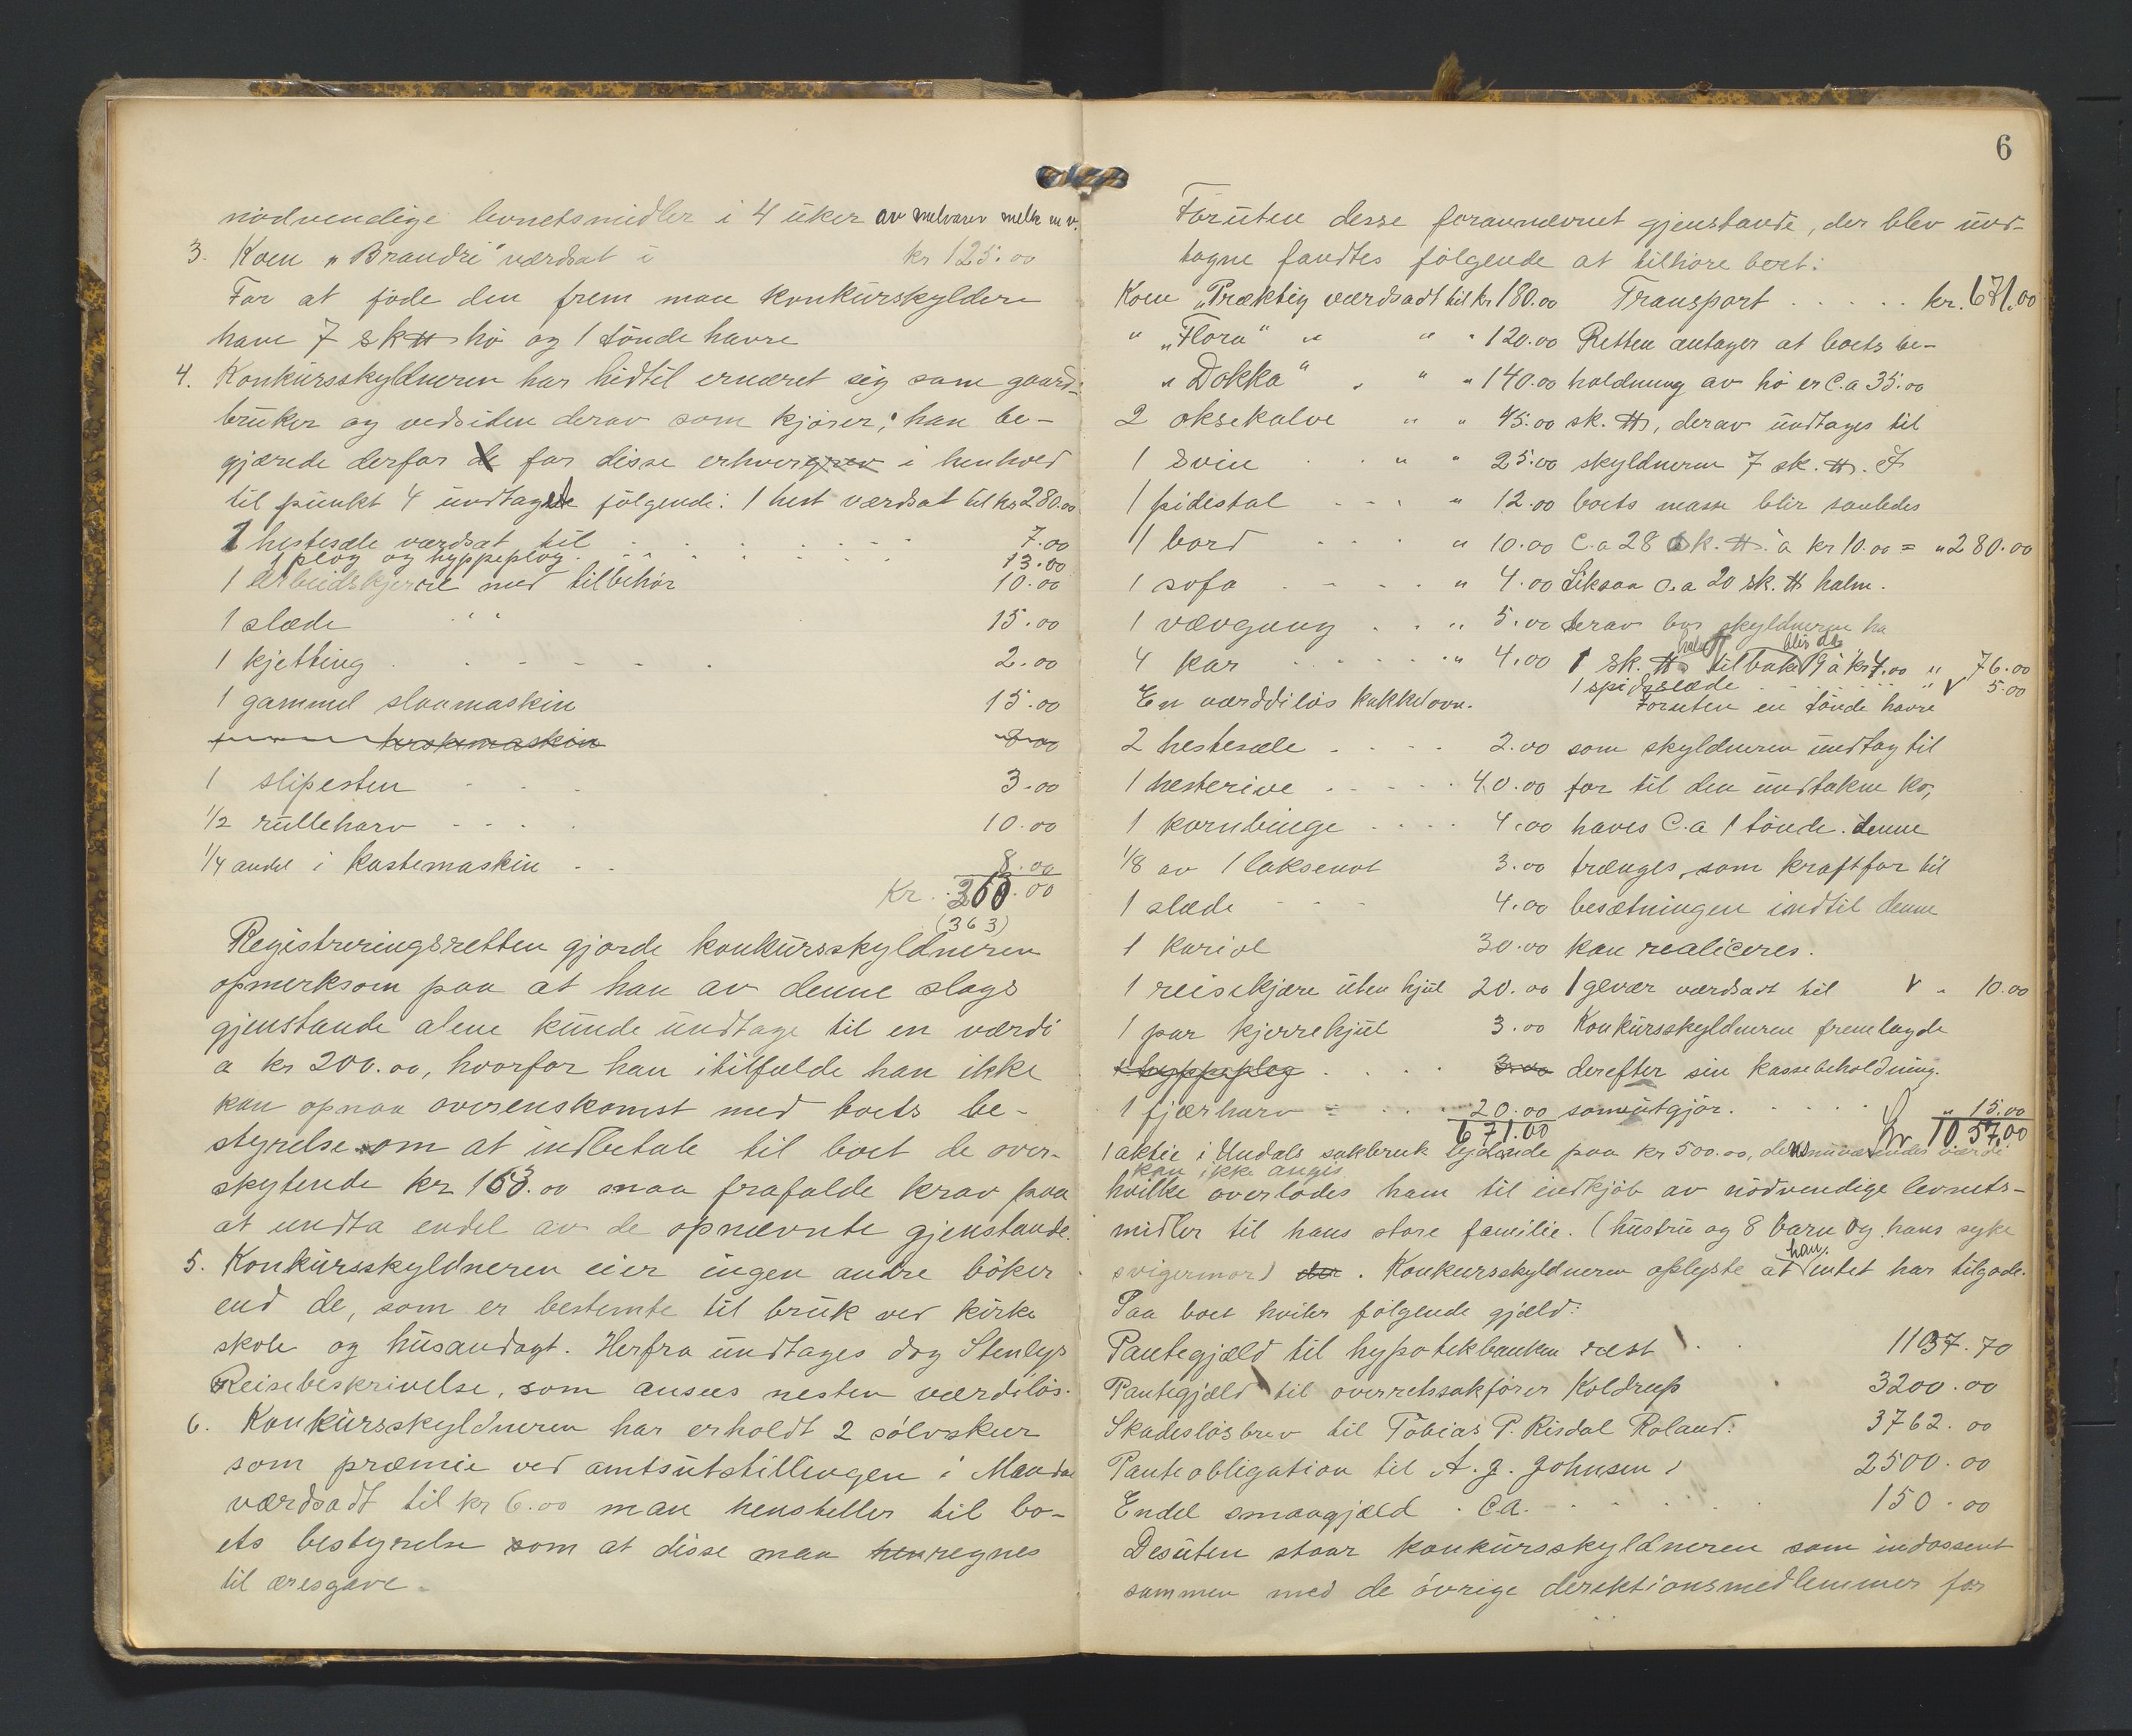 nödvendige levnetsmidler i 4 uker av melvarer melk m v.
3. Koen „Brandri" værdsat i kr 125.00
For at föde den frem maa konkurskyldern
have 7 sk ℔ hö og 1 tönde havre
4. Konkursskyldneren har hidtil ernæret sig som gaard-
bruker og vedsiden derav som kjörer; han be-
gjærede derfor for disse erhvergrev i henhold
til punkt 4 undtaget fölgende: 1 hest værdsat til kr 280.00
1 hestesæle værdsat til 7.00
1 plog og hyppeplog 13.00
1 arbeidskjerre med tilbehör 10.00
1 slæde " " 15.00
1 kjetting 2.00
1 gammel slaamaskin 15.00
treskemaskin 8.00
1 slipesten 3.00
1/2 rulleharv 10.00
1/4 andel i kastemaskin 8.00
Kr. 363.00
(363)
Registreringsretten gjorde konkursskyldneren
opmerksom paa at han av denne slags
gjenstande alene kunde undtage til en værdi
a kr 200.00, hvorfor han i tilfælde han ikke
kan opnaa overenskomst med boets be-
styrelse om at indbetale til boet de over-
skytende kr 163.00 maa frafalde krav paa
at undta endel av de opnævnte gjenstande.
5. Konkursskyldneren eier ingen andre böker
end de, som er bestemte til bruk ved kirke
skole og husandagt. Herfra undtages dog Stenleys
Reisebeskrivelse, som ansees nesten værdilös.
6. Konkursskyldneren har erholdt 2 sölvskeer
som præmie ved amtsutstillingen i Mandal
værdsadt til kr 6.00 man henstiller til bo-
ets bestyrelse om at disse maa henregnes
til æresgave.
6
Foruten desse foranævnet gjenstande, der blev und-
tagne fandtes fölgende at tilhöre boet:
Koen „Præktig værdsadt til kr 180.00
" „Flora" " " " 120.00
" Dokka" " " " 140.00
2 oksekalve " " 45.00
1 Svin " " 25.00
1 pidestal " 12.00
1 bord " 10.00
1 sofa " 4.00
1 vævgang " 5.00
4 kar " 4.00
En værddilös kakkelovn.
2 hestesæle 2.00
1 hesterive 40.00
1 kornbinge 4.00
1/8 av 1 laksenot 3.00
1 slæde 4.00
1 kariol 30.00
1 reisekjære uten hjul 20.00
1 par kjerrehjul 3.00
1 hyppeplog 3.00
1 fjærharv 20.00
671.00
Transport kr. 671.00
Retten antager at boets be-
holdning av hö er C.a 35.00
sk. ℔, derav undtages til
skyldneren 7 sk. ℔. I
boets masse blir saaledes
C.a 28 sk. ℔. a kr 10.00 = " 280.00
Likesaa c.a 20 sk. ℔ halm.
derav bør skyldneren ha
1 sk. ℔ halm tilbake blir det 19 a kr 4.00 " 76.00
1 spidsslæde " 5.00
Foruten en tönde havre
som skyldneren undtog til
for til den undtakne ko,
haves C.a 1 tönde. denne
trænges som kraftfor til
besætningen indtil denne
kan realiceres.
1 gevær værdsat til " 10.00
Konkursskyldneren fremlagde
derefter sin kassebeholdning.
som utgjör. " 15.00
Kr 1057.00
1 aktie i Undals sakbruk lydende paa kr 500.00, dens nuværendes værdi
kan ikke angis
hvilke overlodes ham til indkjöb av nödvendige levnets-
midler til hans store familie. (hustru og 8 barn og hans syke
svigermor) der. Konkursskyldneren oplyste at han intet har tilgode.
Paa boet hviler fölgende gjæld:
Pantegjæld til hypotekbanken rest 1137.70
Pantegjæld til overretssakförer Koldrup 3200.00
Skadeslösbrev til Tobias P. Risdal Roland: 3762.00
Panteobligation til A. J. Johnsen 2500.00
Endel smaagjæld Ca. 150.00
Desuten staar konkursskyldneren som indossent
sammen med de övrige direktionsmedlemmer for